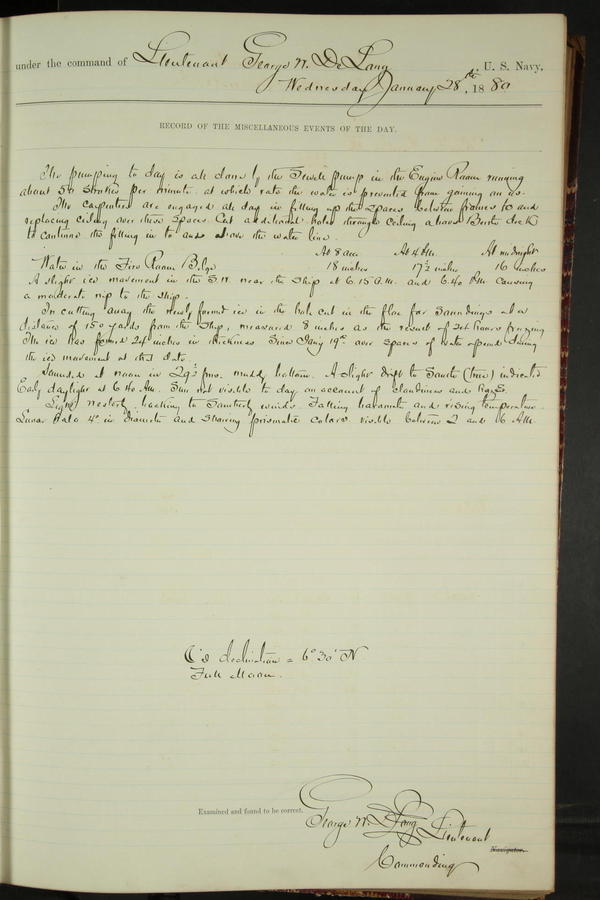 under the command of Lieutenant George W. De Long, U. S. Navy,
Wednesday January 28th, 1880
RECORD OF THE MISCELLANEOUS EVENTS OF THE DAY.
The pumping to day is all done by the Sewell pump in the Engine Room running
about 50 strokes per minute at which rate the water is prevented from gaining on us.
The carpenters are engaged all day in filling up the spaces between frames and
replacing ceiling over these spaces. Cut additional holes through ceiling above Berth deck
to continue the filling in to and above the water line.
At 8 am At 4 PM. At midnight
Water in the Fire Room Bilge 18 inches 17½ inches 16 inches
A slight ice movement in the S.W. near the Ship at 6.15 A.M. and 6.40 PM causing
a moderate nip to the ship.
In cutting away the newly formed ice in the hole cut in the floe for soundings at a
distance of 150 yards from the Ship, measured 8 inches as the result of 24 hours freezing
The ice has formed 24 inches in thickness since Jany 19th over spaces of water opened during
the ice movement at that date.
Sounded at noon in 29½ fms. muddy bottom. A slight drift to South (true) indicated
Early daylight at 6.40 AM. Sun not visible to day on account of cloudiness and haze.
Light westerly, backing to Southerly winds. Falling barometer and rising temperature.
Lunar halo 4° in diameter and showing prismatic colors visible between 2 and 6 AM.
C's declination = 6° 30' N
Full Moon.
Examined and found to be correct.
George W. De Long Lieutenant
Navigator.
Commanding